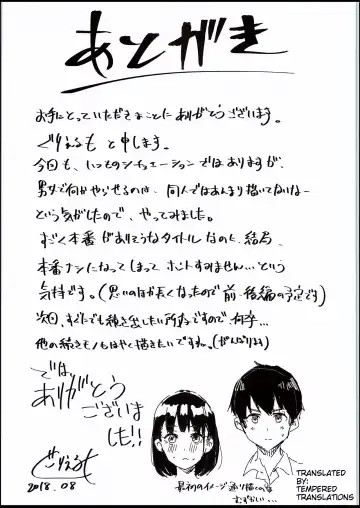 あとがき
お手にとっていただきまことにありがとうございます。
ぐりえるもと申します。
今回も、いつものシチュエーションではありますが、
男女で何かやらせるのは、同人ではあんまり描いてないなー
という気がしたので、やってみました。
すごく本番がありそうなタイトルなのに、結局、
本番ナシになってしまってホントすみません…という
気持です。(思いのほか長くなったので前・後編の予定です)
次回、すぐにでも続き出したい所存ですので、何卒…
他の続きモノもはやく描きたいですね。(がんばります)
では
ありがとう
ございま
した!!
ぐりえるも
2018.08
最初のイメージ通り描くのは
むずかしい…
TRANSLATED
BY:
TEMPERED
TRANSLATIONS